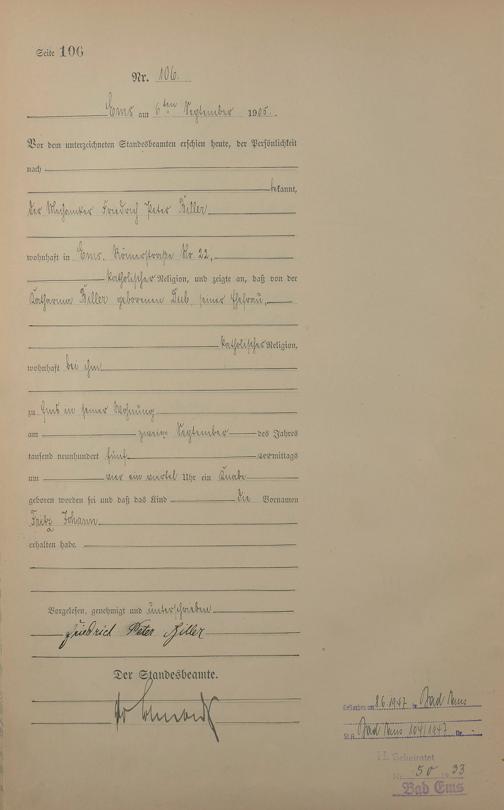 Seite 106
Nr. 106.
Ems am 6ten September 1905.
Vor dem unterzeichneten Standesbeamten erschien heute, der Persönlichkeit
nach
bekannt,
der Mechaniker Friedrich Peter Biller
wohnhaft in Ems, Römerstraße Nr 22,
katholischer Religion, und zeigte an, daß von der
Katharina Biller geborenen seiner Ehefrau,
katholischer Religion,
wohnhaft bei ihm
zu Ems in seiner Wohnung
am zweiten September des Jahres
tausend neunhundert fünf vormittags
um vier ein viertel Uhr ein Knabe
geboren worden sei und daß das Kind die Vornamen
Fritz Johann
erhalten habe.
Vorgelesen, genehmigt und unterschrieben
Friedrich Peter Biller
Der Standesbeamte.
Gestorben am 2.6.1947 in Bad Ems
Bad Ems 104/1947 Nr.
Geheiratet
Nr. 50 1933
Bad Ems